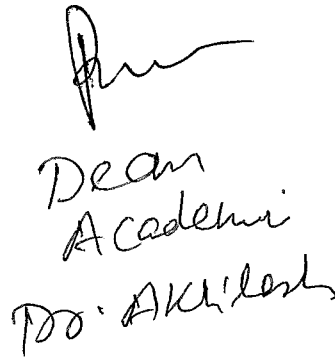 Dean
Academi
Dr. Akhilesh